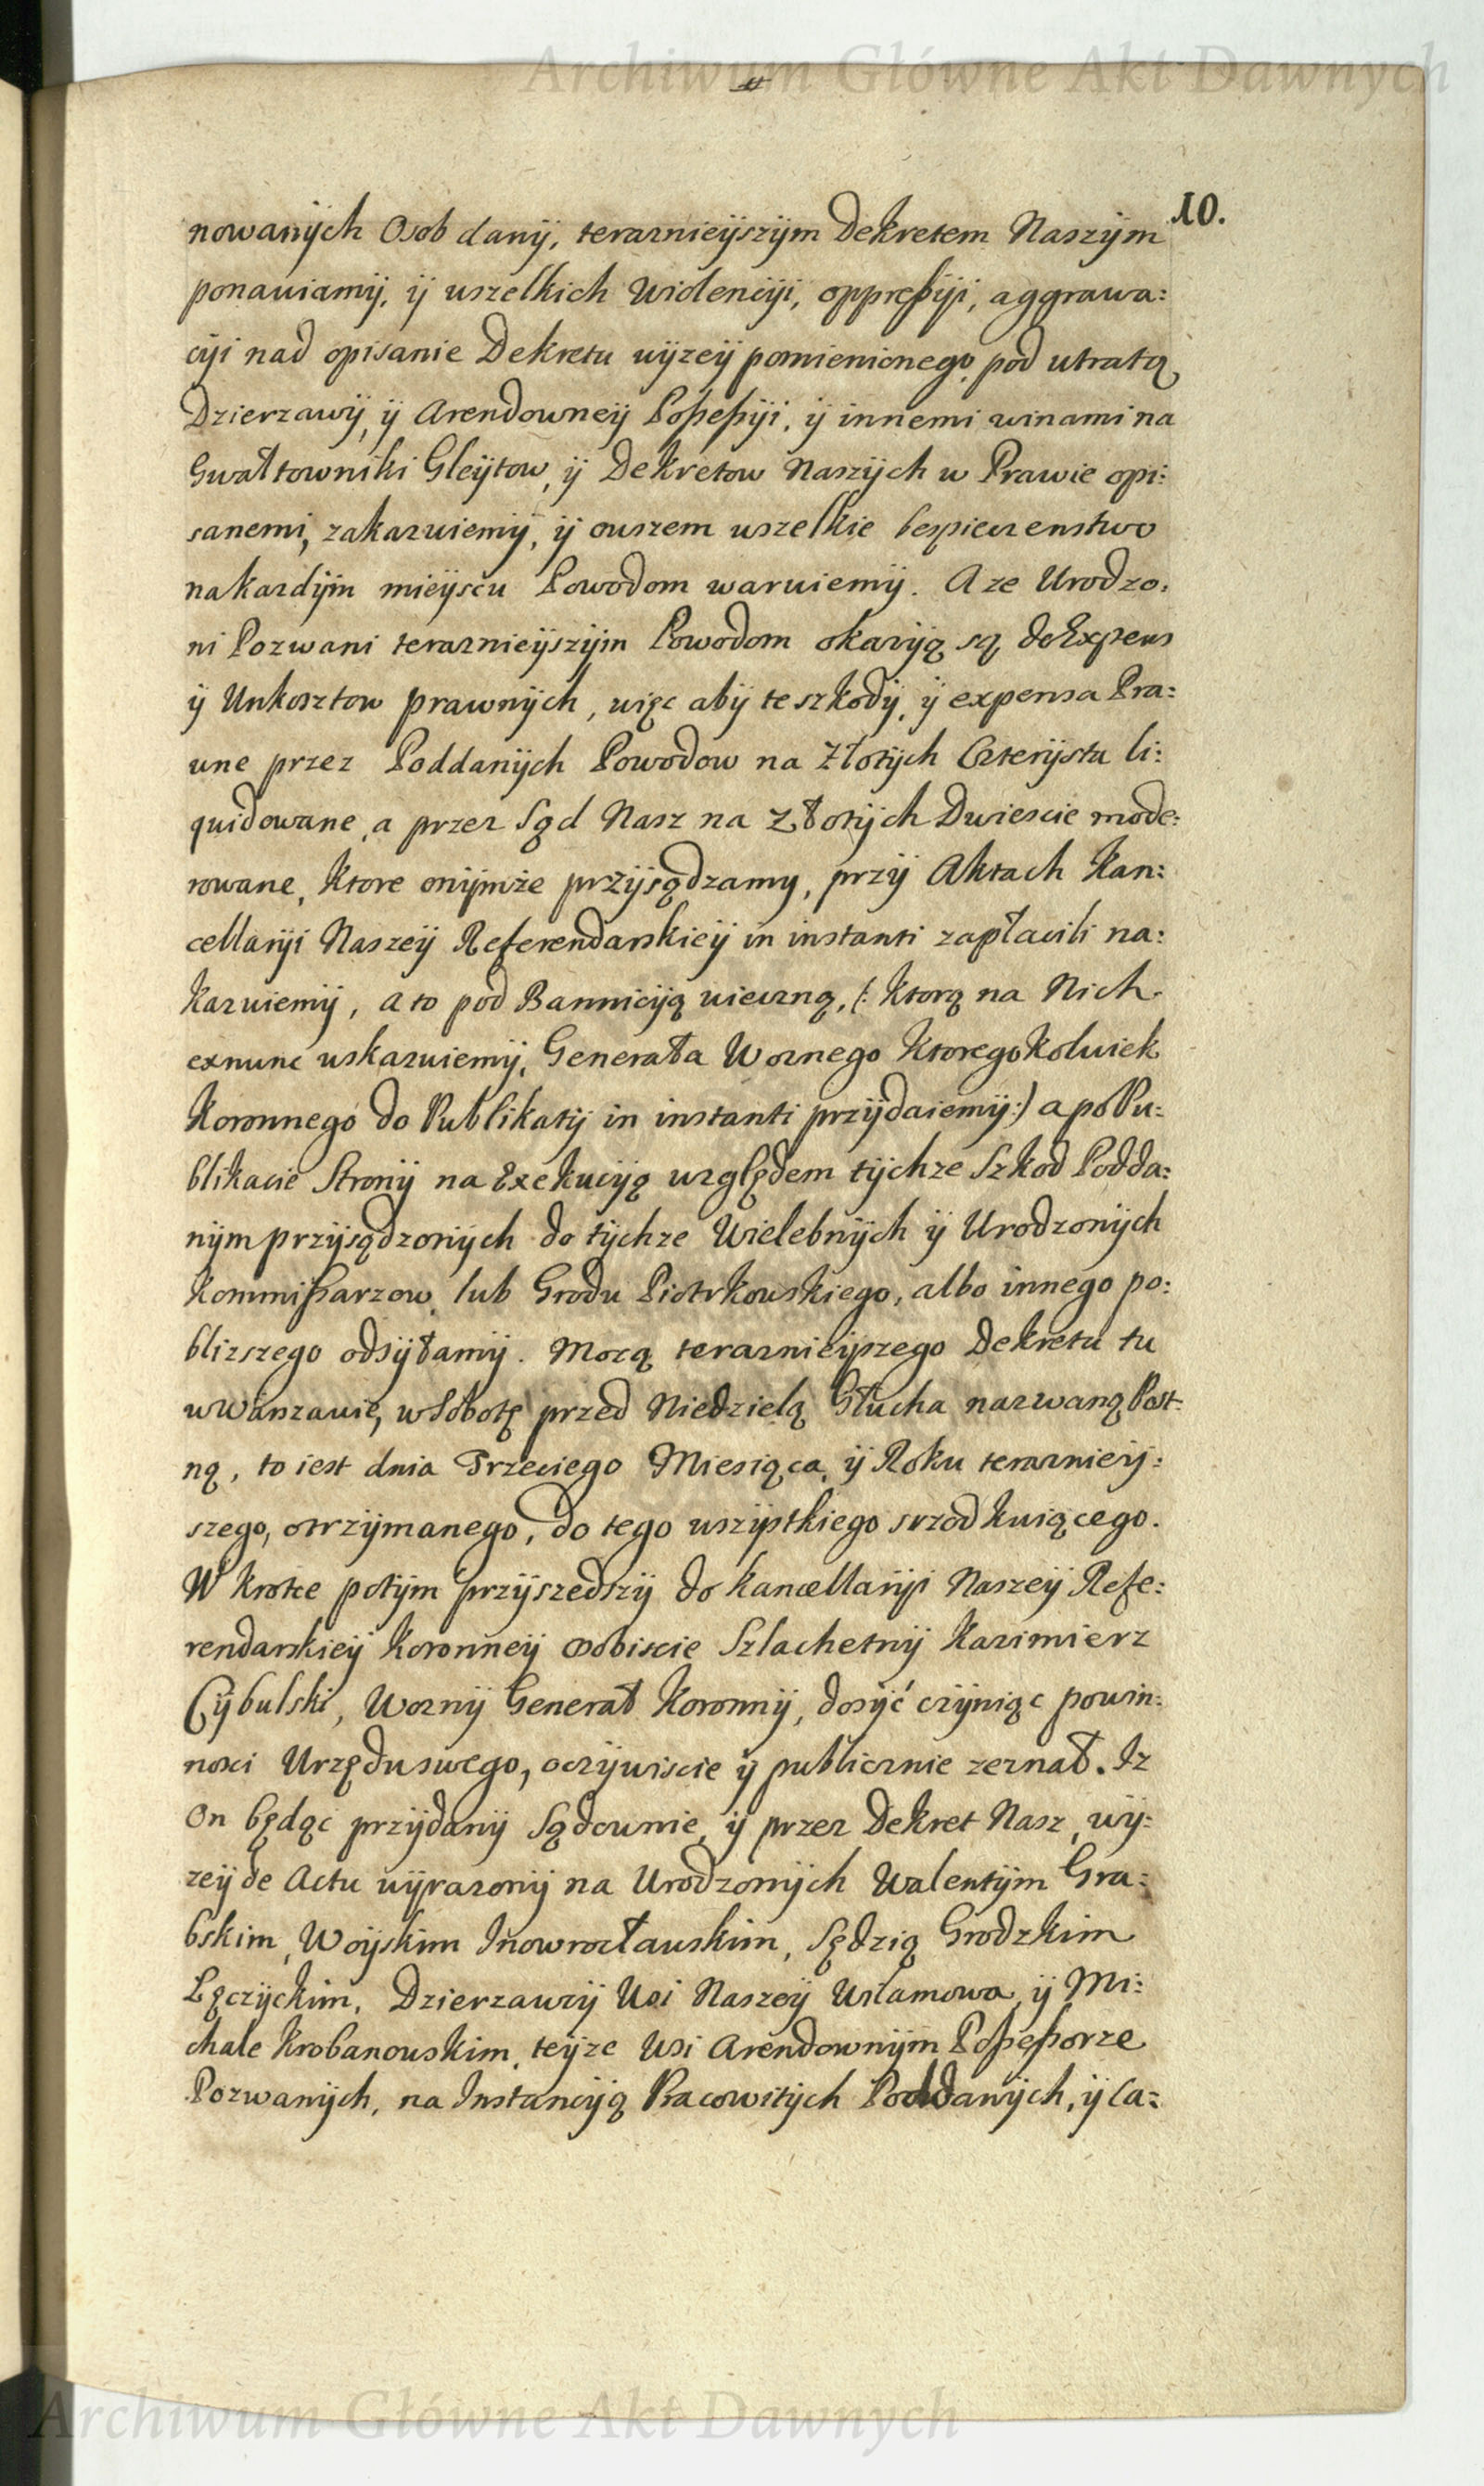 Archiwum Główne Akt Dawnych
10.
nowanÿch Osob danÿ, terazniéÿszÿm Dekretem Naszÿm
ponawiamÿ, ÿ wszelkich Wiolencÿi, oppreßÿi, aggrawa:
cÿi nad opisanie Dekretu wÿzeÿ pomienionego, pod utratą
Dzierzawÿ, ÿ Arendowneÿ Poßeßÿi, ÿ innemi winami na
Gwałtowniki Gleÿtow, ÿ Dekretow Naszÿch w Prawie opi:
sanemi, zakazuiemÿ, ÿ owszem wszelkie bespieczenstwo
nakazdÿm mieÿscu Powodom waruiemÿ. A ze Urodzo:
ni Pozwani teraznieÿszÿm Powodom okazÿą są do Expens
ÿ Unkosztow prawnÿch, więc abÿ te szkodÿ, ÿ expensa Pra:
wne przez Poddanÿch Powodow na Złotÿch Czterÿsta li:
quidowane, a przez Sąd Nasz na Złotÿch Dwiescie mode:
rowane, Ktore onÿmże przÿsądzamy, przÿ Aktach Kan:
cellarÿi Naszeÿ Referendarskieÿ in instanti zapłacili na:
kazuiemÿ, a to pod Bannicÿą wieczną, (: ktorą na Nich
exnunc wskazuiemÿ, Generała Woznego Ktoregokolwiek
Koronnego do Publikatÿ in instanti przÿdaiemÿ:) a po Pu:
blikacie Stronÿ na Exekucÿą względem tÿchze Szkod Podda:
nÿm przÿsądzonÿch do tÿchze Wielebnÿch ÿ Urodzonÿch
Kommißarzow, lub Grodu Piotrkowskiego, albo innego po:
blizszego odsÿłamÿ. Mocą teraznieÿszego Dekretu tu
w Warszawie, w Sobotę przed Niedzielą Głucha nazwaną Post:
ną, to iest dnia Trzeciego Miesiąca, ÿ Roku teraznieÿ:
szego, otrzÿmanego, do tego wszÿstkiego srzodkuiącego.
W krotce potÿm przÿszedszÿ do kancellarÿi Naszeÿ Refe:
rendarskieÿ Koronneÿ osobiscie Szlachetnÿ Kazimierz
Cÿbulski, Woznÿ Generał Koronnÿ, dosÿć czÿniąc powin:
nosci Urzęduswego, oczÿwiscie ÿ publicznie zeznał. Iz
On będąc przÿdanÿ Sądownie, ÿ przez Dekret Nasz, wÿ:
zeÿ de Actu wÿrazonÿ na Urodzonÿch Walentÿm Gra:
bskim, Woÿskim Inowrocławskim, Sędzią Grodzkim
Łęczÿckim, Dzierzawcÿ Wsi Naszeÿ Usłamowa, ÿ Mi:
chale Krobanowskim, teÿze Wsi Arendownÿm Poßeßorze
Pozwanÿch, na Instancÿą Pracowitÿch Poddanÿch, ÿ Ca:
Archiwum Główne Akt Dawnych